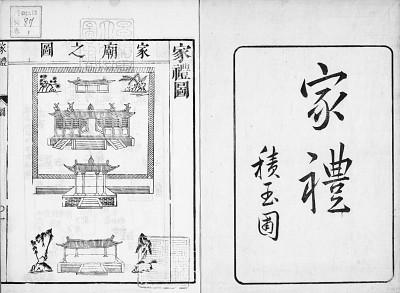 家禮
積玉圃
家禮圖
家廟之圖
家禮
圖
87
1